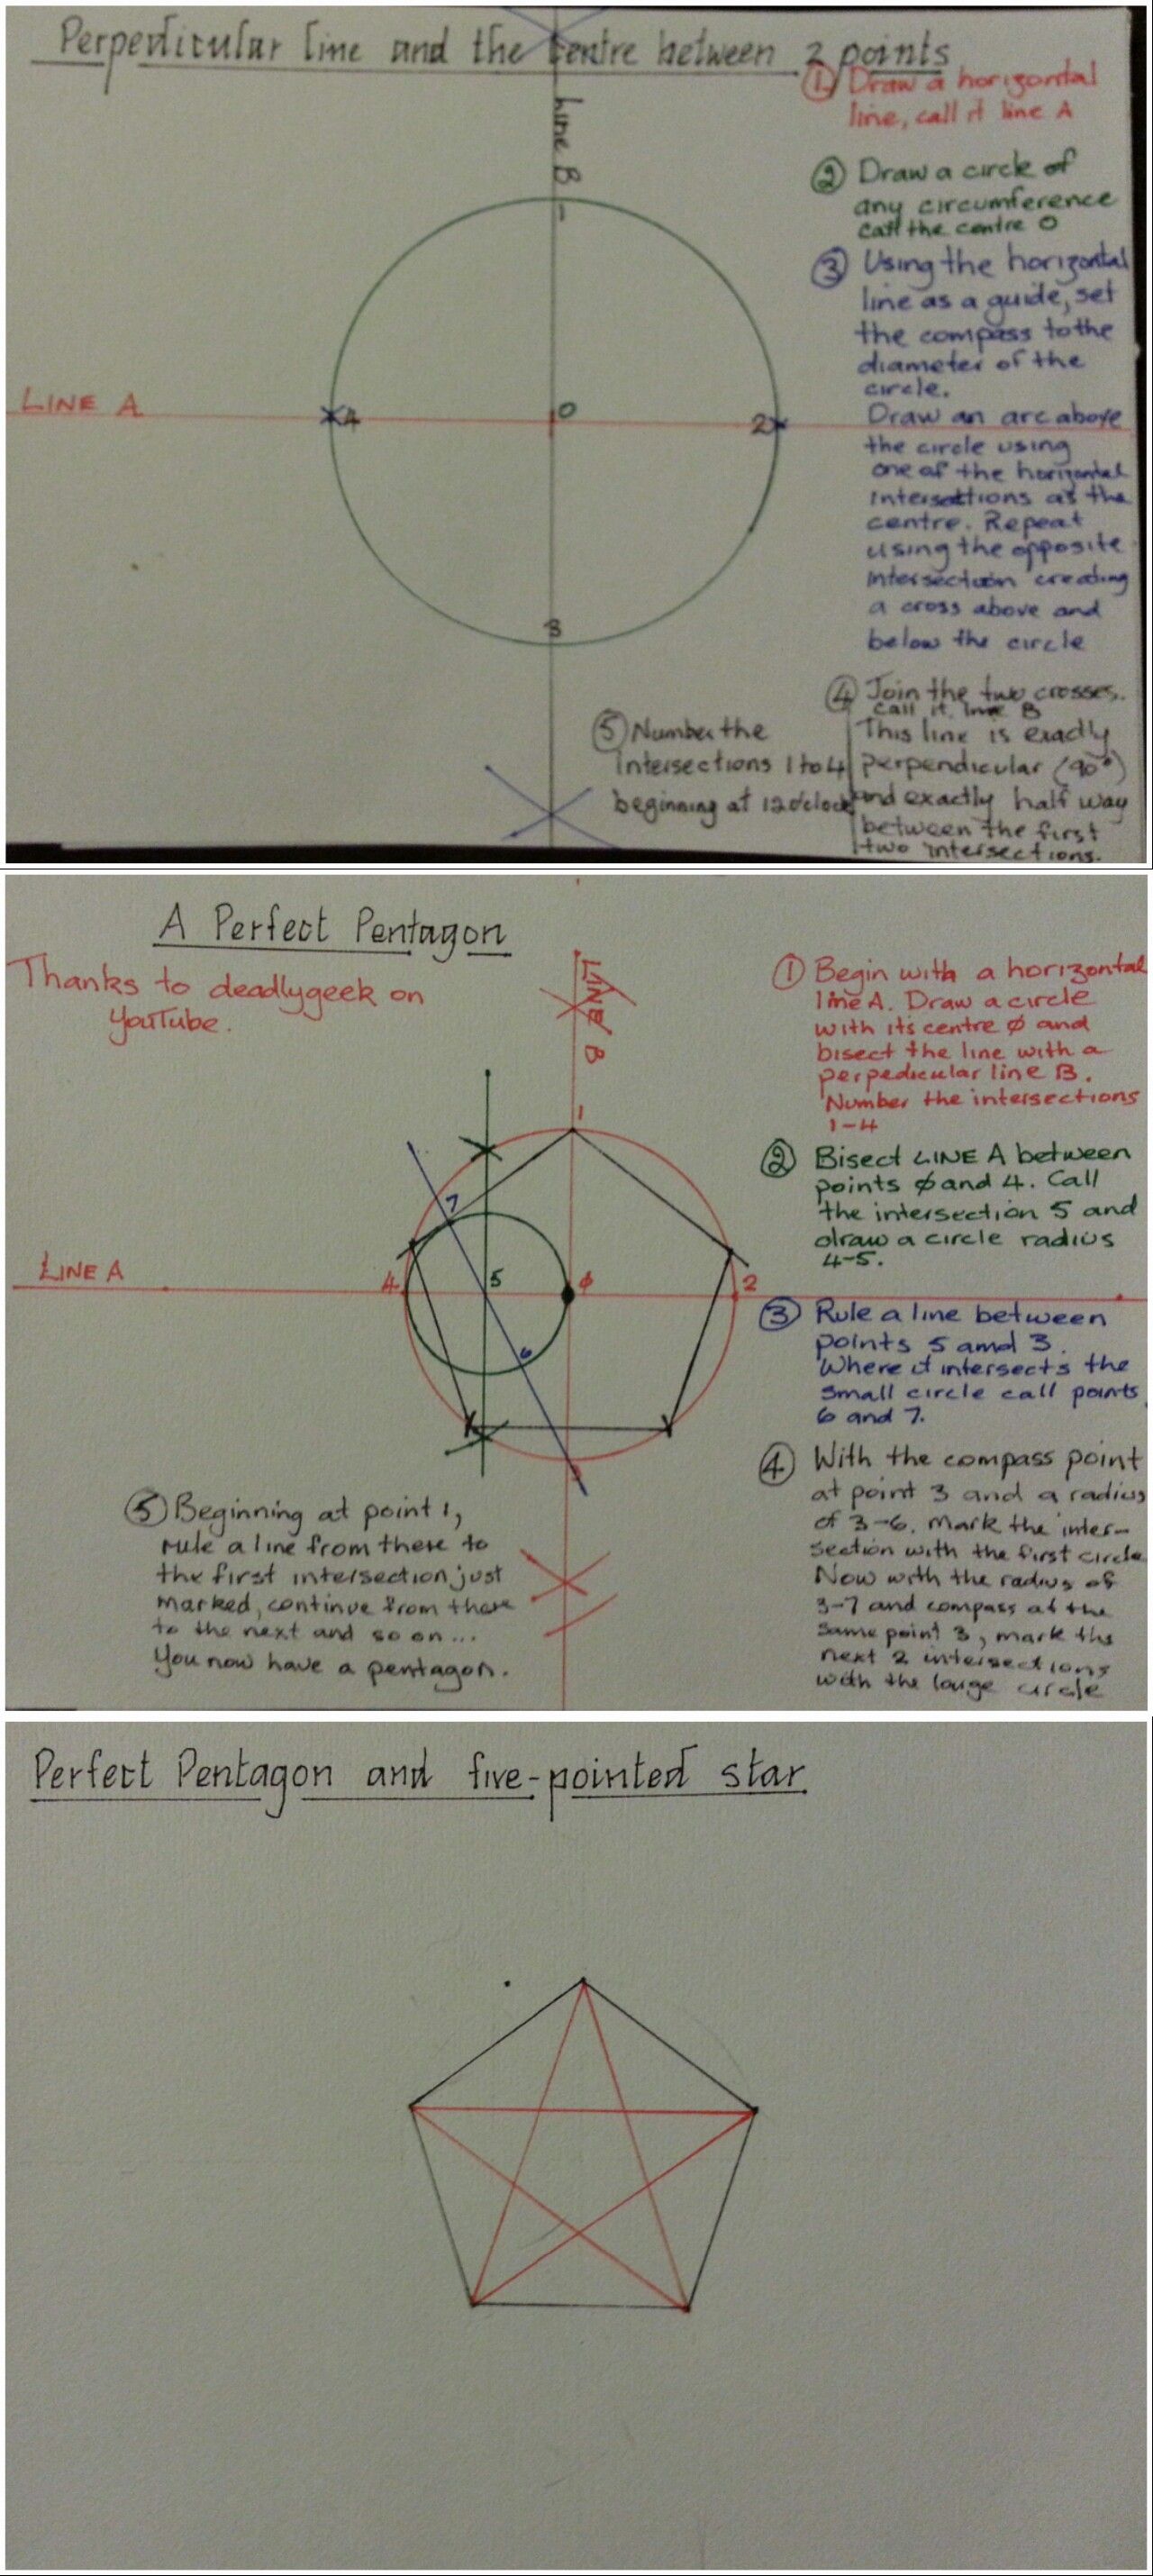 Perpendicular line and the Centre between 2 points
① Draw a horizontal
line, call it line A
② Draw a circle of
any circumference
call the centre O
③ Using the horizontal
line as a guide, set
the compass to the
diameter of the
circle.
Draw an arc above
the circle using
one of the horizontal
intersections as the
centre. Repeat
using the opposite
intersection creating
a cross above and
below the circle
④ Join the two crosses.
Call it line B
This line is exactly
perpendicular (90°)
and exactly half way
between the first
two intersections.
⑤ Number the
intersections 1 to 4
beginning at 12 o'clock
Line B
1
LINE A
4
O
2
3
A Perfect Pentagon
Thanks to deadlygeek on
YouTube.
LINE B
① Begin with a horizontal
line A. Draw a circle
with its centre ø and
bisect the line with a
perpedicular line B.
Number the intersections
1-4
② Bisect LINE A between
points ø and 4. Call
the intersection 5 and
draw a circle radius
4-5.
③ Rule a line between
points 5 amd 3.
Where it intersects the
small circle call points
6 and 7.
④ With the compass point
at point 3 and a radius
of 3-6. Mark the inter-
section with the first circle
Now with the radius of
3-7 and compass at the
same point 3, mark the
next 2 intersections
with the large circle
⑤ Beginning at point 1,
rule a line from there to
the first intersection just
marked, continue from there
to the next and so on...
You now have a pentagon.
1
7
LINE A
4
5
ø
2
6
3
Perfect Pentagon and five-pointed star